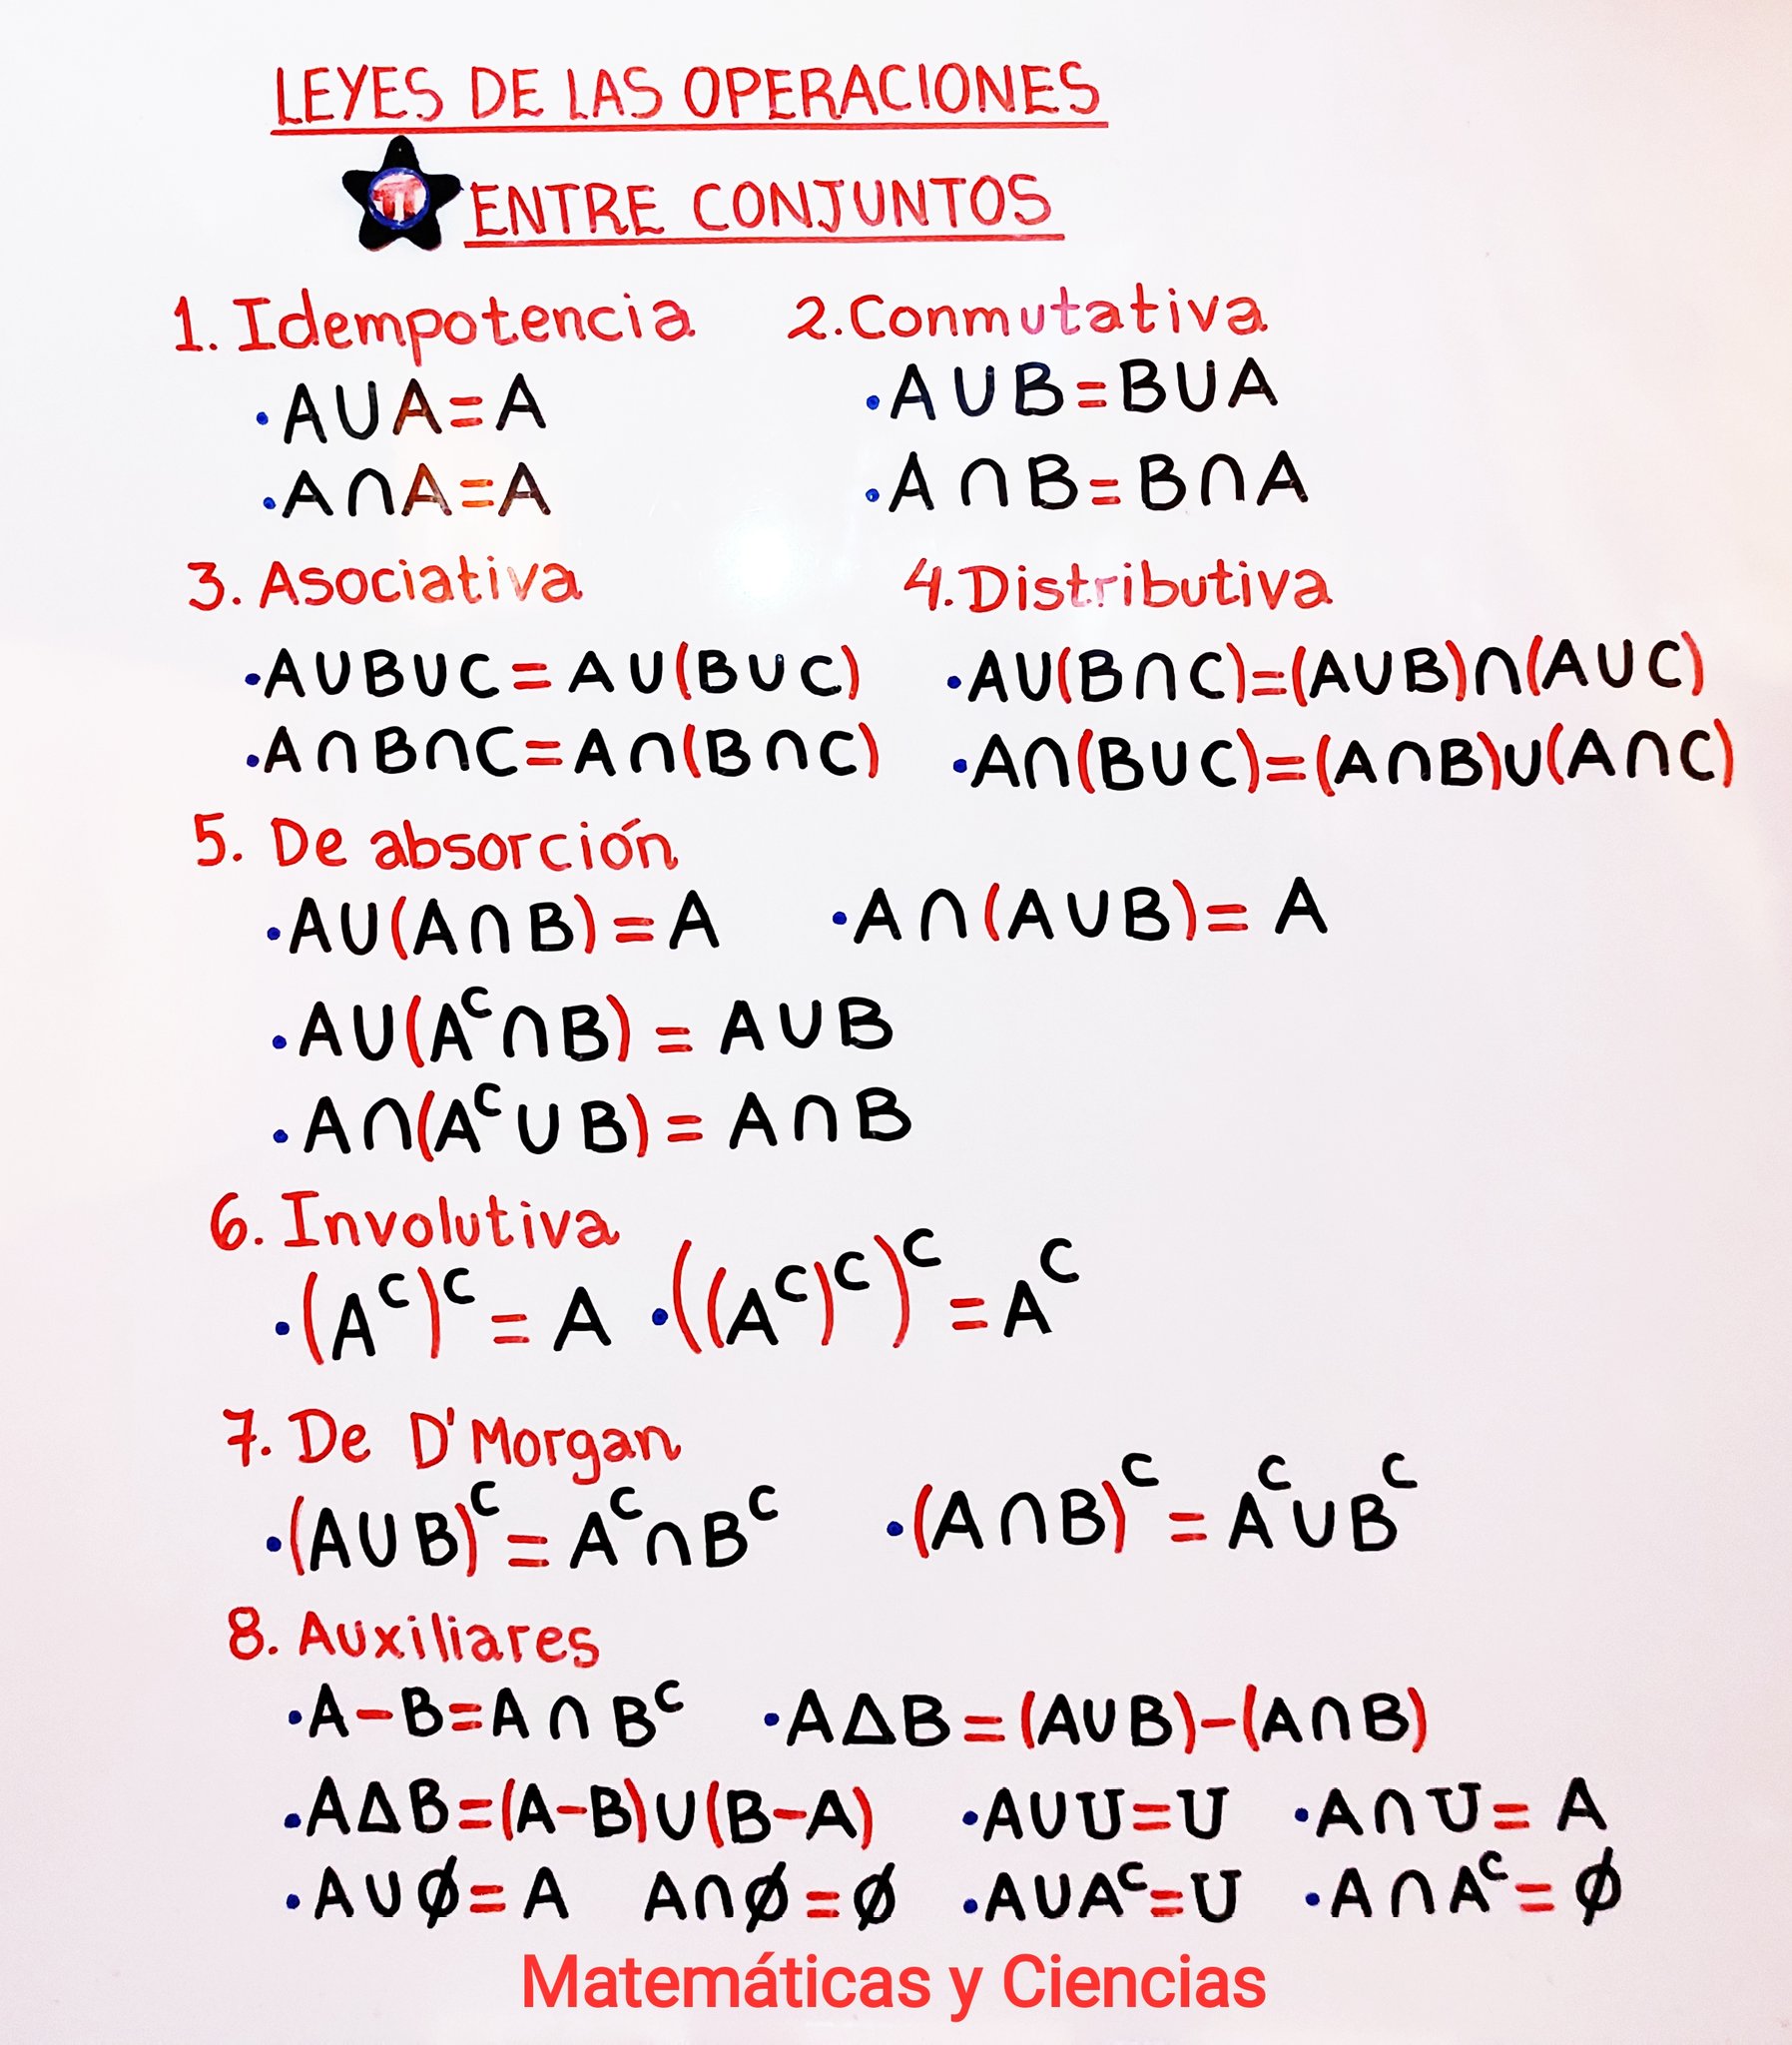 LEYES DE LAS OPERACIONES
π ENTRE CONJUNTOS
1. Idempotencia
•A∪A=A
•A∩A=A
2. Conmutativa
•A∪B=B∪A
•A∩B=B∩A
3. Asociativa
•A∪B∪C=A∪(B∪C)
•A∩B∩C=A∩(B∩C)
4. Distributiva
•A∪(B∩C)=(A∪B)∩(A∪C)
•A∩(B∪C)=(A∩B)∪(A∩C)
5. De absorción
•A∪(A∩B)=A •A∩(A∪B)= A
•A∪(Aᶜ∩B) = A∪B
•A∩(Aᶜ∪B) = A∩B
6. Involutiva
•(Aᶜ)ᶜ = A •((Aᶜ)ᶜ)ᶜ = Aᶜ
7. De D'Morgan
•(A∪B)ᶜ = Aᶜ∩Bᶜ •(A∩B)ᶜ = Aᶜ∪Bᶜ
8. Auxiliares
•A−B=A∩Bᶜ •A∆B=(A∪B)−(A∩B)
•A∆B=(A−B)∪(B−A) •A∪U=U •A∩U= A
•A∪∅=A A∩∅=∅ •A∪Aᶜ=U •A∩Aᶜ=∅
Matemáticas y Ciencias